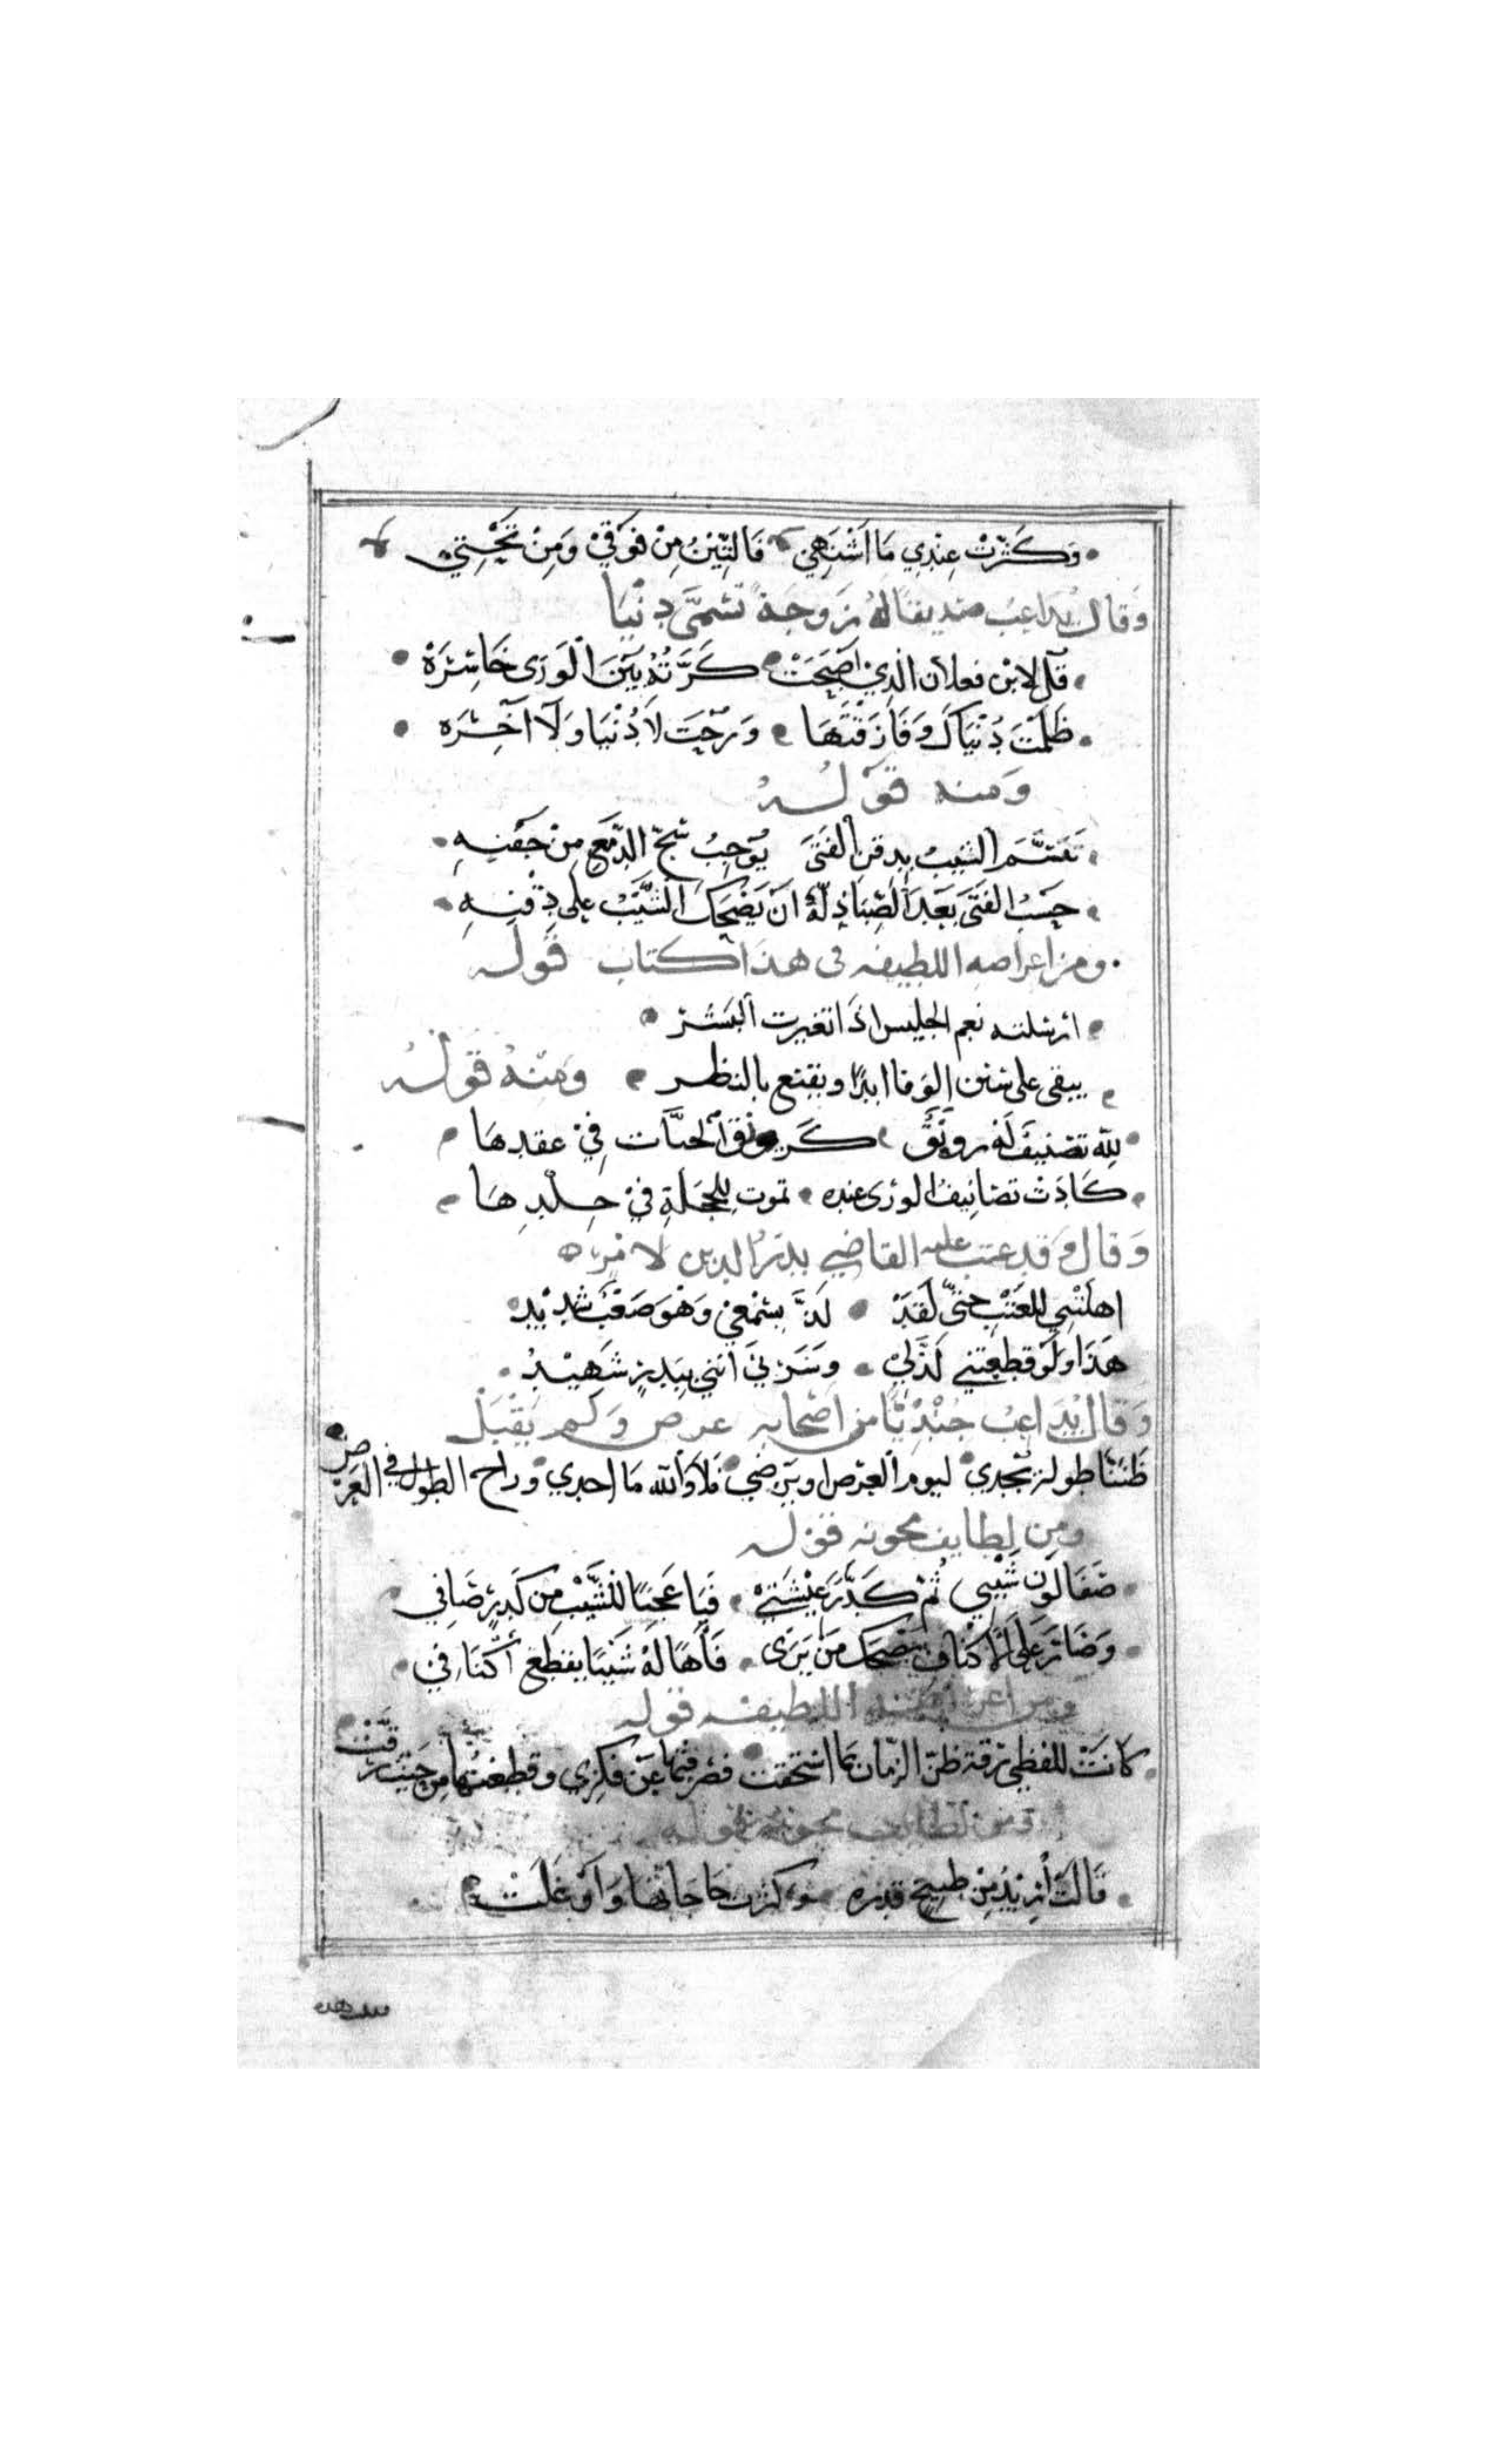 وَكَثَّرْتْ عِنْدِي مَا اَشْتَهِي فَالتِّيْنُ مِنْ فَوْقِيْ وَمِنْ تَحْتِي
وَقالَ يُدَاعِبُ صَدِيقًا لهُ بزَوجَةً تسَمَّى دنْيَا
قُل لابْن فعلان الذِي اَصْبَحَتْ كَرَّتُهُ بَيْنَ الْوَرَى خَاسِرَهْ
ظَلمْتَ دُنْيَاكَ وَفَارَقْتَهَا وَرُحْتَ لَا دُنْيَا وَلَا آخِرَه
وَمنه قوْلُهُ
تَبَسُّمُ الشيبُ بِدقنِ الفَتَى يُوْجِبُ سَحَّ الدَّمْعِ مِنْ جَفْنِهِ
حَسْبُ الفَتَى بَعْدَ الصِّبَا ذِلَّةً اَنْ يَضْحَكَ الشَّيْبُ عِلى دِقْنِهِ
ومن اغراضه اللطيفه في هذا كتاب قولُه
ارسَلته نعم الجليس اذَا تغيرت البَشَرْ
يبقى على سنن الوَفا ابدًا ويقنع بالنظر وَمنْهُ قَوْلُهُ
لِلَّهِ تصْنيفٌ لَهُ رونَقٌ كَرونَقِ الحبَّات فِيْ عقدِهَا
كَادَتْ تصَانِيفُ الورَى عنده تموت للخجلةِ فيْ جِلْدِهَا
وَقال وَقد عتب عليه القاضِي بدرُ الدين لامْرٍ
اهلتْنِي للعَتْبِ حتىّ لَقَدْ لَذَّ بِسَمْعِيْ وَهْوَ صَعْبٌ شَدِيْد
هَذا وَلَو قطعتنِي لَذَّ لِيْ وَسَرَّنيْ انني بِبَدْرٍ شَهِيْدُ
وَقال يُدَاعِبُ جُنْدِيًّا من اصْحابه عرض وَلَم يُقْبَلْ
ظَنَنَّا طولهُ تُجْدي ليوم العَرْض او يَرضي فلا وَالله مَا اجدي وراح الطول في العَرْضِ
ومِن لطايف مجونه قوْله
صَفَا لَون شَيْبِي ثُمْ كَدَّرَ عِيْشَتِيْ فَيَا عَجبًا للشَّيْبِ مِن كَدِرٍ صَافِي
وَصَارَ عَلى الاكْتافِ يضْحك مَنْ يَرَى فَآهًا لَهُ شَيْبًا بقطْعِ أكْتَافِيْ
ومن اغراضه اللطيفه قوله
كانَتْ للفظي رقة ظنّ الزمان بما استحقت فصرفتها عَنْ فكرِي وقطعتها مِن حَيث رَقّتْ
ومن لطايف مجونه قوله
قَالَتْ أرِيْدُ مِنْ طَبِيخِ قدره وَكثرت حَاجَاتها وَاَوْغَلَتْ